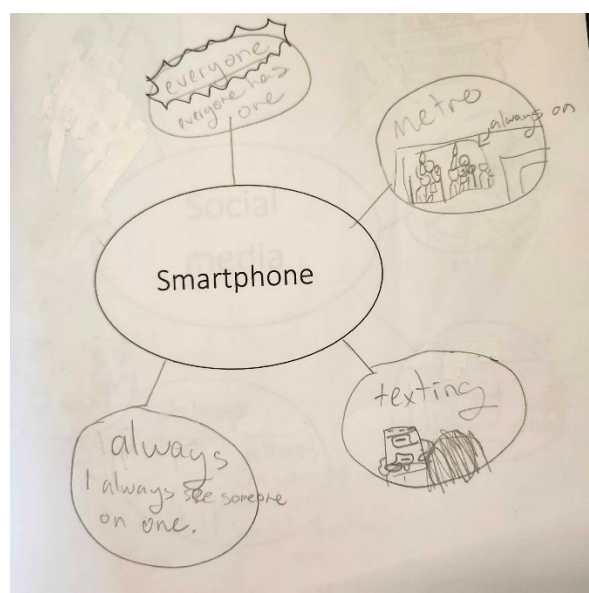 everyone
everyone has
one
metro
always on
Social
media
Smartphone
texting
always
I always see someone
on one.